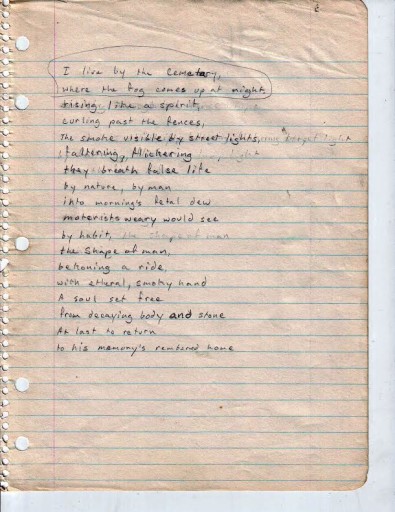 I live by the Cemetary,
where the fog comes up at night,
rising, like a spirit,
curling past the fences,
The smoke visible by street lights,
faltening, flickering light
they breath false life
by nature, by man
into morning's fetal dew
moterists weary would see
by habit, the shape of man
the Shape of man,
bekoning a ride,
with etheral, smoky hand
A soul set free
from decaying body and stone
At last to return
to his memory's rembered home